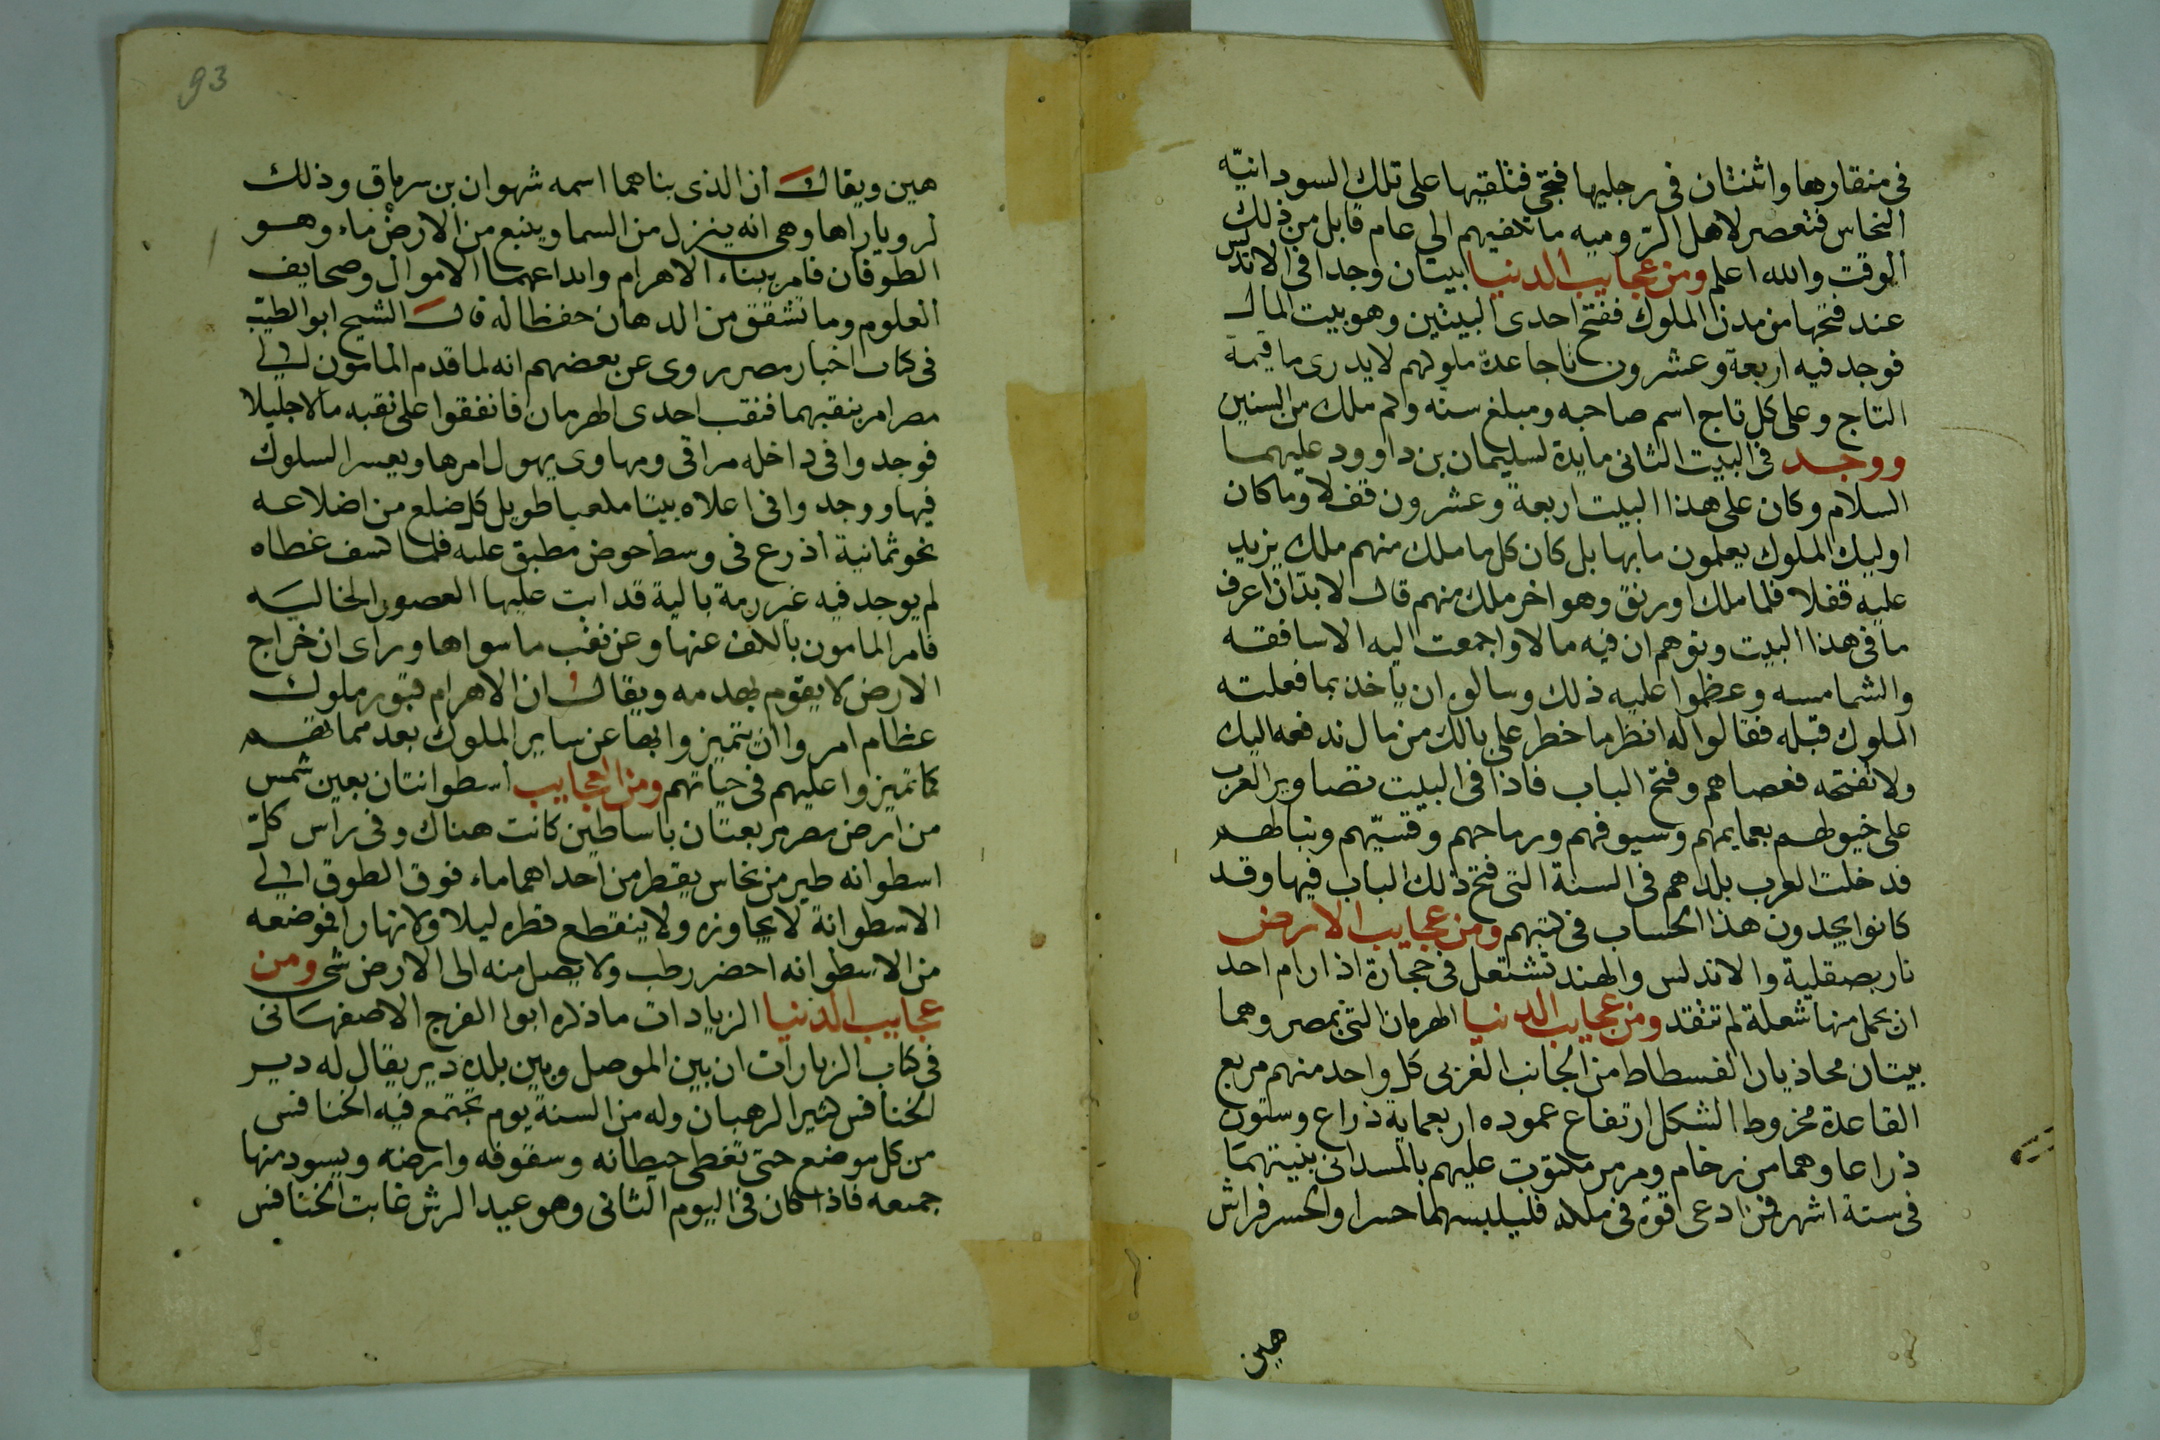 فى منقارها واثنتان فى رجليها فتجى فتلقيها على تلك السودانيّه
النحاس فتعصر لاهل الرّوميه ما تكفيهم الى عام قابل من ذلك
الوقت والله اعلم ومن عجايب الدنيا بيتان وجدا فى الاندلس
عند فتحها من مدن الملوك ففتح احدى البيتين وهو بيت المال
فوجد فيه اربعة وعشرون تاجا عدة ملوكهم لا يدرى ما قيمة
التاج وعلى كل تاج اسم صاحبه ومبلغ سنه وكم ملك من السنين
ووجد فى البيت الثانى مايدة لسليمان بن داوود عليهما
السلام وكان على هذا البيت اربعة وعشرون قفلا وما كان
اوليك الملوك يعلمون ما بها بل كان كل ما ملك منهم ملك يزيد
عليه قفلا فلما ملك اورنق وهو اخر ملك منهم قال لا بدّ ان اعرف
ما فى هذا البيت وتوهم ان فيه مالا واجمعت اليه الاساقفه
والشمامسه وعظموا عليه ذلك وسالوه ان ياخذ بما فعلته
الملوك قبله فقالوا له انظر ما خطر على بالك من مال ندفعه اليك
ولا تفتحه فعصاهم وفتح الباب فاذا فى البيت تصاوير العرب
على خيولهم بعمايمهم وسيوفهم ورماحهم وقسيّهم ونبالهم
فدخلت العرب بلدهم فى السنة التى فتح ذلك الباب فيها وقد
كانوا يجدون هذا الحساب فى كتبهم ومن عجايب الارض
نار بصقلية والاندلس والهند تشتعل فى حجارة اذا رام احد
ان يحمل منها شعلة لم تتقد ومن عجايب الدنيا الهرمان التى بمصر وهما
بيتان محاذيان الفسطاط من الجانب الغربى كل واحد منهم مربع
القاعدة مخروط الشكل ارتفاع عموده اربعماية ذراع وستون
ذراعا وهما من رخام ومرمر مكتوب عليهم بالمسدانى بنيتهما
فى ستة اشهر فمن ادعى قوة فى ملكه فليلبسهما حسرا والحسر فراش
هين
93
هين ويقال ان الذى بناهما اسمه شهوان بن سرماق وذلك
لرويا راها وهى انه ينزل من السما وينبع من الارض ماء وهو
الطوفان فامر ببناء الاهرام وايداعهما الاموال وصحايف
العلوم وما تشقق من الدهان حفظا له قال الشيخ ابو الطيّب
فى كتاب اخبار مصر روى عن بعضهم انه لما قدم المامون الى
مصر امر بنقبهما فنقب احدى الهرمان فانفقوا على نقبه مالا جليلا
فوجدوا فى داخله مراقى ومهاوى يهول امرها ويعسر السلوك
فيها ووجدوا فى اعلاه بيتا ملعبا طويل كل ضلع من اضلاعه
نحو ثمانية اذرع فى وسط حوض مطبق عليه فلما كشف غطاه
لم يوجد فيه غير رمة بالية قد اتت عليها العصور الخاليه
فامر المامون بالكف عنها وعن نقب ما سواها وراى ان خراج
الارض لا يقوم بهدمه ويقال ان الاهرام قبور ملوك
عظام امروا ان يتميزوا بها عن ساير الملوك بعد مماتهم
كما تميزوا عليهم فى حياتهم ومن العجايب اسطوانتان بعين شمس
من ارض مصر مربعتان باساطين كانت هناك وفى راس كلّ
اسطوانه طير من نحاس يقطر من احداهما ماء فوق الطوق الى
الاسطوانة لا يجاوزه ولا ينقطع قطره ليلا ولا نهارا فموضعه
من الاسطوانه اخضر رطب ولا يصل منه الى الارض شى ومن
عجايب الدنيا الزيادات ما ذكره ابوا الفرج الاصفهانى
فى كتاب الزيارات ان بين الموصل وبين بلده دير يقال له دير
الخنافس كثير الرهبان وله من السنة يوم تجتمع فيه الخنافس
من كل موضع حتى تغطى حيطانه وسقوفه وارضه ويسود منها
جميعه فاذا كان فى اليوم الثانى وهو عيد الرش غابت الخنافس